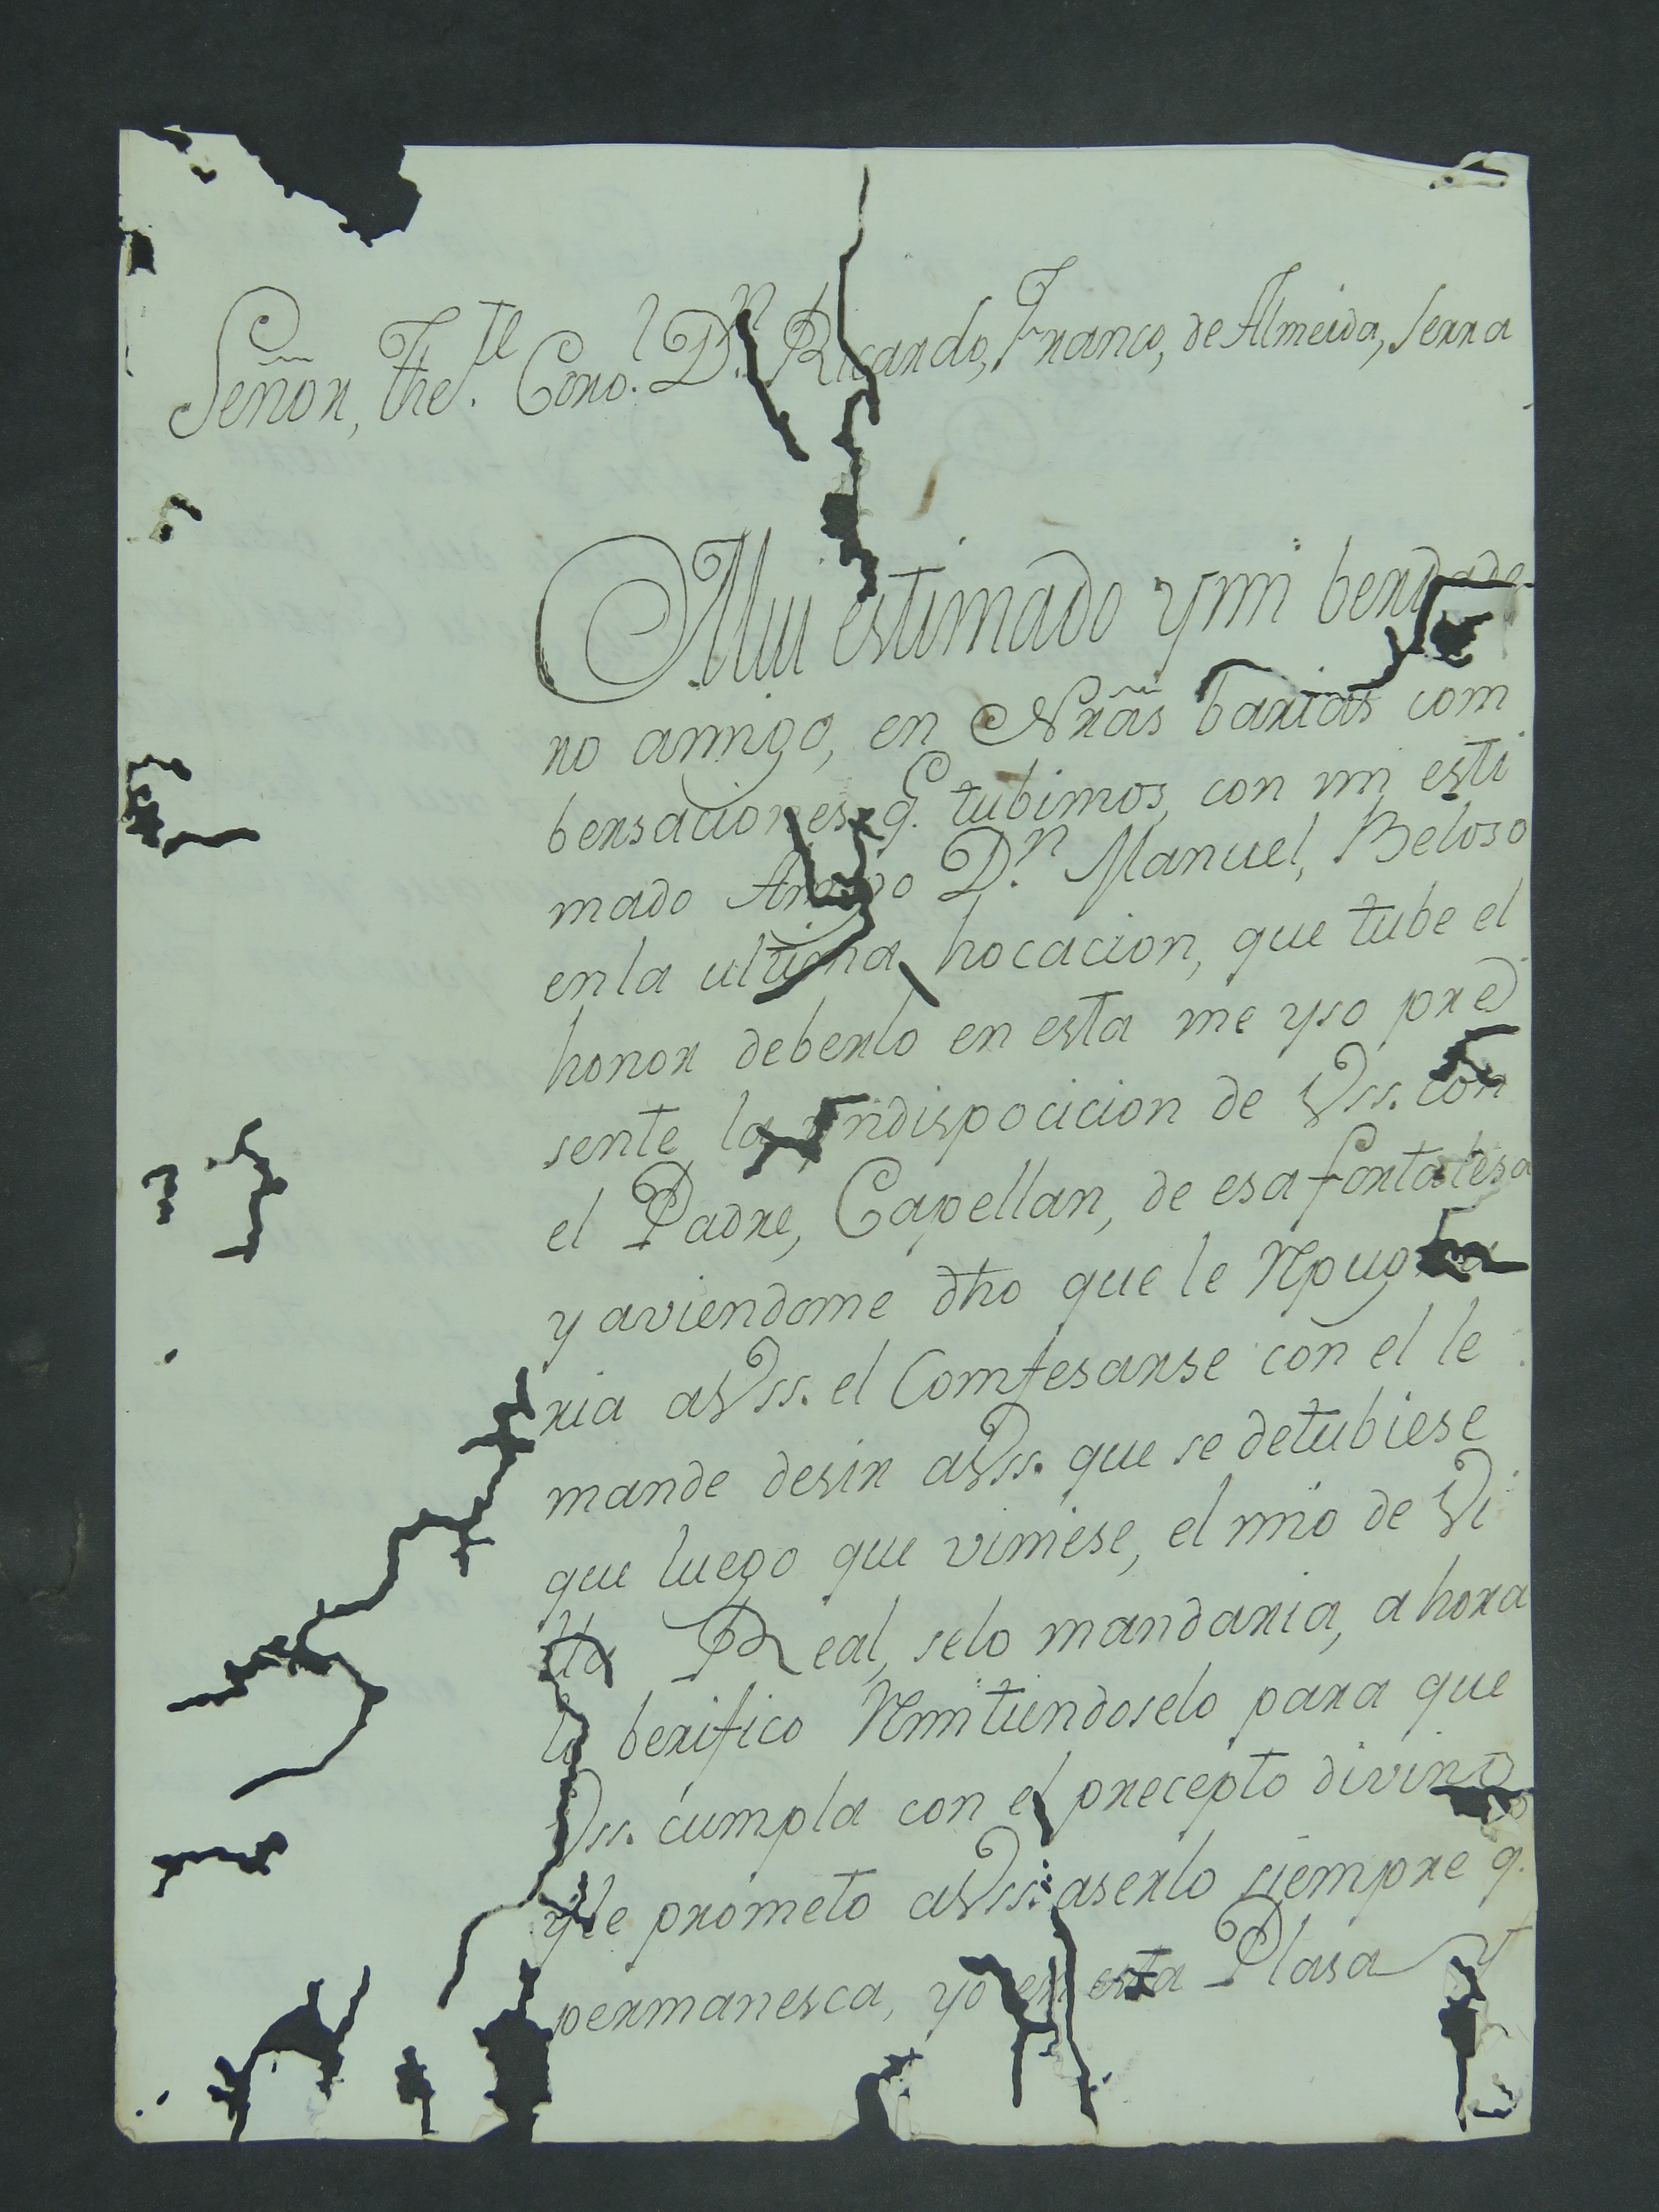 Señor, The.te Coro.l D.n Ricardo, Franco, de Almeida, Serra
Mui estimado y mi berdade
ro amigo, en Nrãs barias com
bersaciones q. tubimos, con mi esti
mado Amigo D.n Manuel, Beloso
en la ultima hocacion, que tube el
honor deberlo en esta me yso pre
sente la yndispocicion de Vss. con
el Padre, Capellan, de esa fortalesa
y aviendome dho que le Rpugna
ria aVss. el Comfesarse con el le
mande desir aVss. que se detubiese
que luego que viniese, el mio de Vi
lla Real, selo mandaria, ahora
lo berifico Rmitiendoselo para que
Vss. cumpla con el precepto divino
yle prometo aVss. aserlo siempre q.
permanesca, yo en esta Plasa y